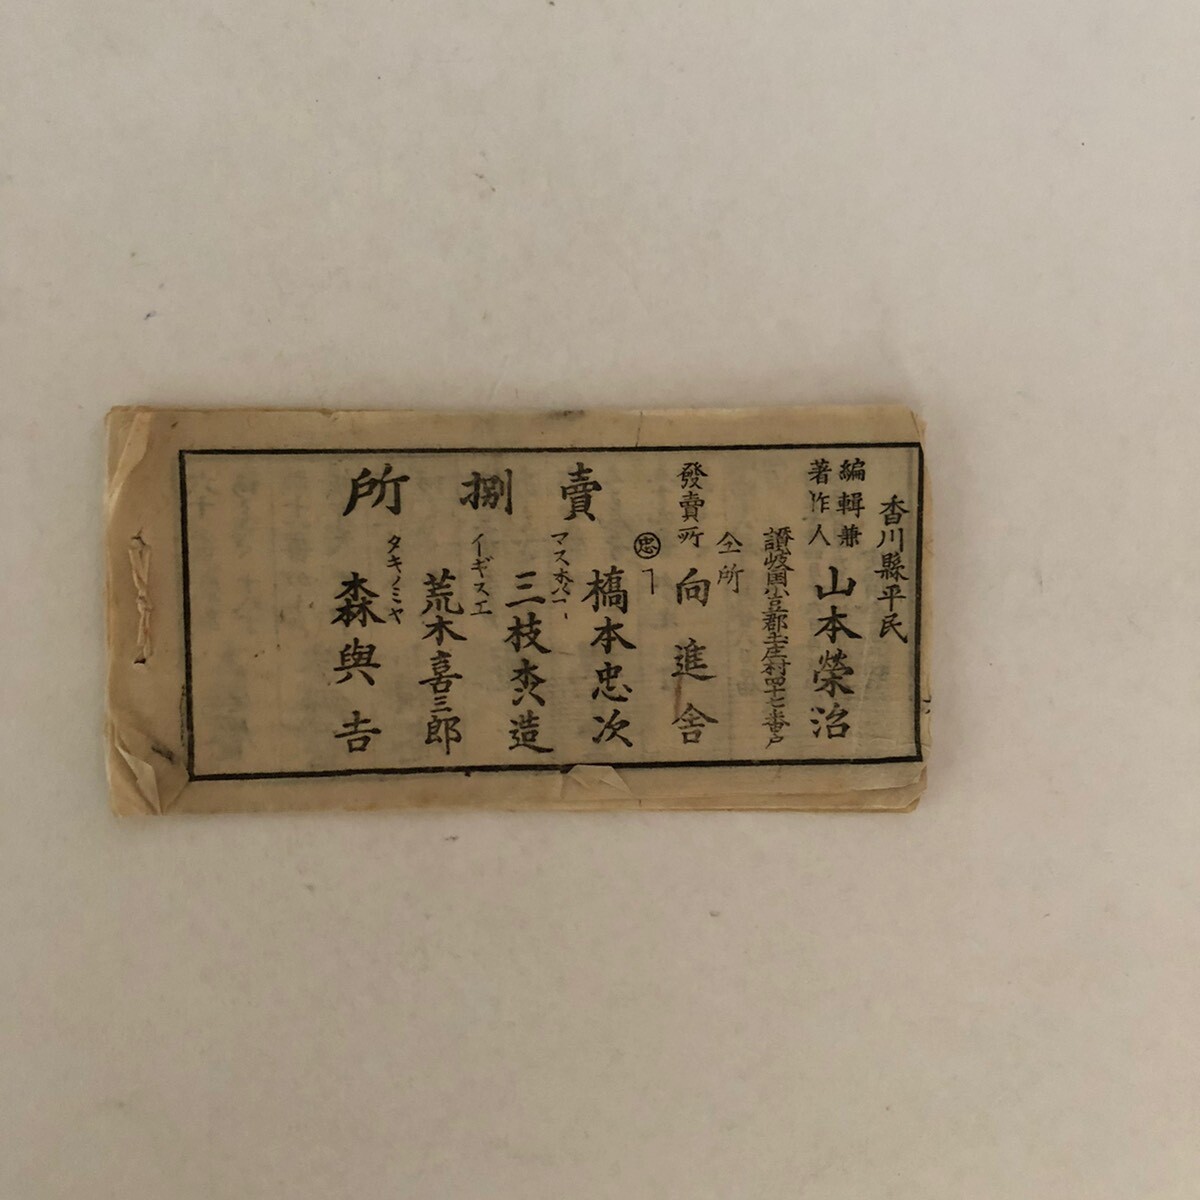 香川縣平民
編輯兼
著作人
山本榮治
讃岐国小豆郡土庄村四十七番戸
仝所
發賣所
向進舎
賣捌所
忠
橋本忠次
三枝
造
イギスエ
荒木喜三郎
タキノミヤ
森與吉